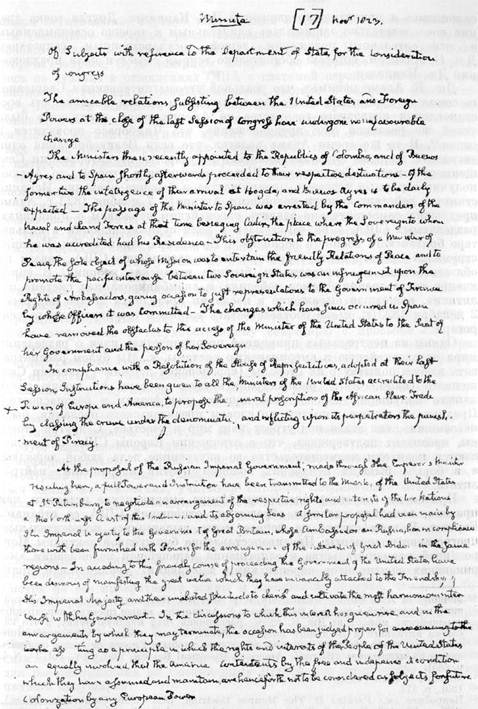 Minute [17] Nov.r 1823.
Of Subjects with reference to the Department of State for the consideration
of Congress
The amicable relations subsisting between the United States and Foreign
Powers at the close of the last Session of Congress have undergone no unfavourable
change
The Ministers then recently appointed to the Republics of Colombia, and of Buenos
Ayres and to Spain shortly afterwards proceeded to their respective destinations – Of the
former two the intelligence of their arrival at Bogota, and Buenos Ayres is to be daily
expected – The passage of the Minister to Spain was arrested by the Commanders of the
Naval and Land Forces at that time besieging Cadiz, the place where the Sovereign to whom
he was accredited had his Residence – This obstruction to the progress of a Minister of
Peace, the sole object of whose Mission was to entertain the friendly Relations of Peace and to
promote the pacific intercourse between two Sovereign States was an infringement upon the
Rights of Ambassadors, giving occasion to just representations to the Government of France
by whose Officers it was committed – The changes which have since occurred in Spain
have removed the obstacles to the access of the Minister of the United States to the Seat of
her Government and the person of her Sovereign
In compliance with a Resolution of the House of Representatives, adopted at their last
Session, Instructions have been given to all the Ministers of the United States accredited to the
Powers of Europe and America, to propose the proscription of the African Slave Trade
by classing the crime under the denomination, and inflicting upon its perpetrators the punish-
ment of Piracy.
At the proposal of the Russian Imperial Government, made through the Emperor's Minister
residing here, a full Power and Instructions have been transmitted to the Minister of the United States
at St. Petersburg to negotiate an arrangement of the respective rights and interests of the two Nations
on the North West Coast of this Continent and its adjoining Seas. A similar proposal had been made by
His Imperial Majesty to the Government of Great Britain, whose Ambassador in Russia, has in compliance
been furnished with Powers for the arrangement of the of Great Britain in the same
regions – In acceding to this friendly course of proceeding the Government of the United States have
been desirous of manifesting the great value which they have invariably attached to the Friendship of
His Imperial Majesty and their solicitude to cherish and cultivate the most harmonious inter-
course with his Government – In the discussions to which this interest has given rise, and in the
arrangements by which they may terminate, the occasion has been judged proper for
asserting as a principle in which the rights and interests of the People of the United States
are equally involved that the American Continents by the free and independent condition
which they have assumed and maintain, are henceforth not to be considered as subjects for future
Colonization by any European Power